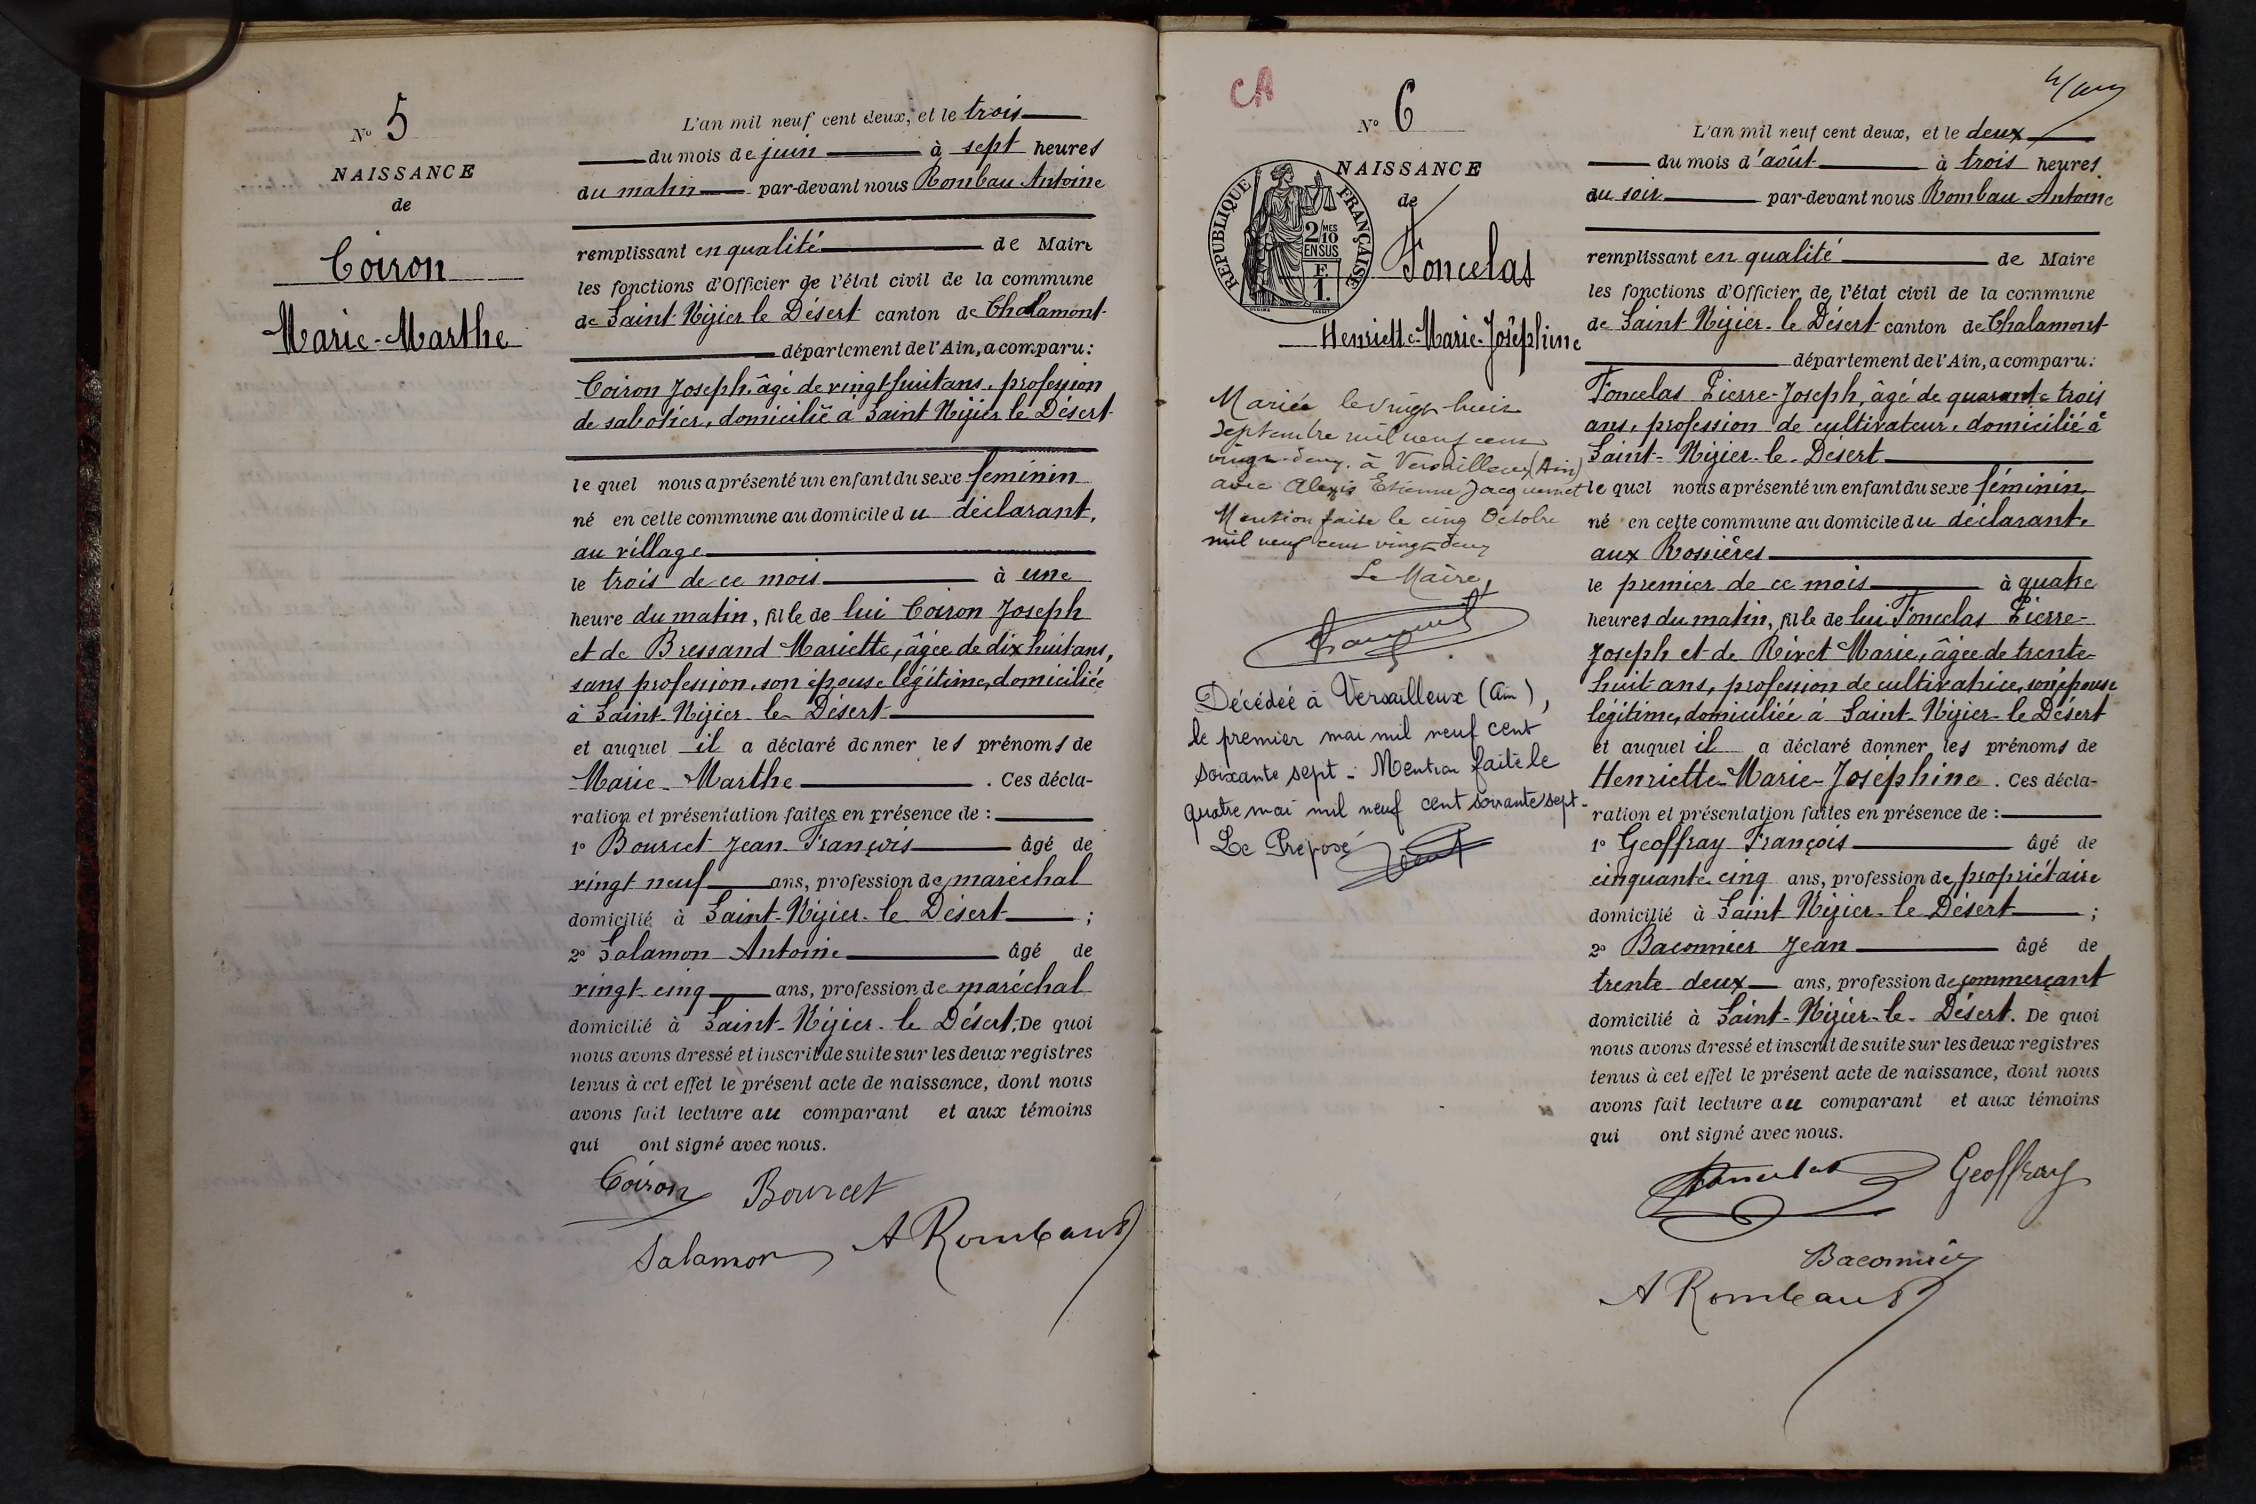 N° 5
NAISSANCE
de
Coiron
Marie-Marthe
L'an mil neuf cent deux, et le trois
du mois de juin à sept heures
du matin par-devant nous Rombau Antoine
remplissant en qualité de Maire
les fonctions d'Officier de l'état civil de la commune
de Saint Nizier le Désert canton de Chalamont
département de l'Ain, a comparu:
Coiron Joseph, âgé de vingt huit ans, profession
de sabotier, domicilié à Saint Nizier le Désert
le quel nous a présenté un enfant du sexe féminin
né en cette commune au domicile du déclarant,
au village
le trois de ce mois à une
heure du matin, fille de lui Coiron Joseph
et de Bressand Mariette, âgée de dix huit ans,
sans profession, son épouse légitime, domiciliée
à Saint-Nizier le Désert
et auquel il a déclaré donner les prénoms de
Marie-Marthe. Ces décla-
ration et présentation faites en présence de :
1° Bourcet Jean-François âgé de
vingt neuf ans, profession de maréchal
domicilié à Saint-Nizier-le Désert ;
2° Salamon Antoine âgé de
vingt-cinq ans, profession de maréchal
domicilié à Saint-Nizier-le Désert; De quoi
nous avons dressé et inscrit de suite sur les deux registres
tenus à cet effet le présent acte de naissance, dont nous
avons fait lecture au comparant et aux témoins
qui ont signé avec nous.
Coiron Bourcet
Salamon A Rombaud
CA
N° 6
NAISSANCE
de
RÉPUBLIQUE FRANÇAISE
2/10 MES
EN SUS
Foncelas
Henriette-Marie-Joséphine
Mariée le vingt-huit
septembre mil neuf cent
vingt-deux à Versailleux (Ain)
avec Alexis Etienne Jacquemet
Mention faite le cinq Octobre
mil neuf cent vingt-deux
Le Maire,
Décédée à Versailleux (Ain),
le premier mai mil neuf cent
soixante sept - Mention faite le
quatre mai mil neuf cent soixante sept.
Le Préposé
L'an mil neuf cent deux, et le deux
du mois d'août à trois heures
du soir par-devant nous Rombau Antoine
remplissant en qualité de Maire
les fonctions d'Officier de l'état civil de la commune
de Saint-Nizier-le Désert canton de Chalamont
département de l'Ain, a comparu:
Foncelas Pierre-Joseph, âgé de quarante trois
ans, profession de cultivateur, domicilié à
Saint-Nizier-le-Désert
le quel nous a présenté un enfant du sexe féminin
né en cette commune au domicile du déclarant,
aux Rossières
le premier de ce mois à quatre
heures du matin, fille de lui Foncelas Pierre-
Joseph et de Rivet Marie, âgée de trente-
huit ans, profession de cultivatrice, son épouse
légitime, domiciliée à Saint-Nizier-le Désert
et auquel il a déclaré donner les prénoms de
Henriette-Marie-Joséphine. Ces décla-
ration et présentation faites en présence de :
1° Geoffray François âgé de
cinquante cinq ans, profession de propriétaire
domicilié à Saint Nizier-le Désert ;
2° Baconnier Jean âgé de
trente deux ans, profession de commerçant
domicilié à Saint-Nizier-le-Désert. De quoi
nous avons dressé et inscrit de suite sur les deux registres
tenus à cet effet le présent acte de naissance, dont nous
avons fait lecture au comparant et aux témoins
qui ont signé avec nous.
Foncelas Geoffray
Baconnier
A Rombaud